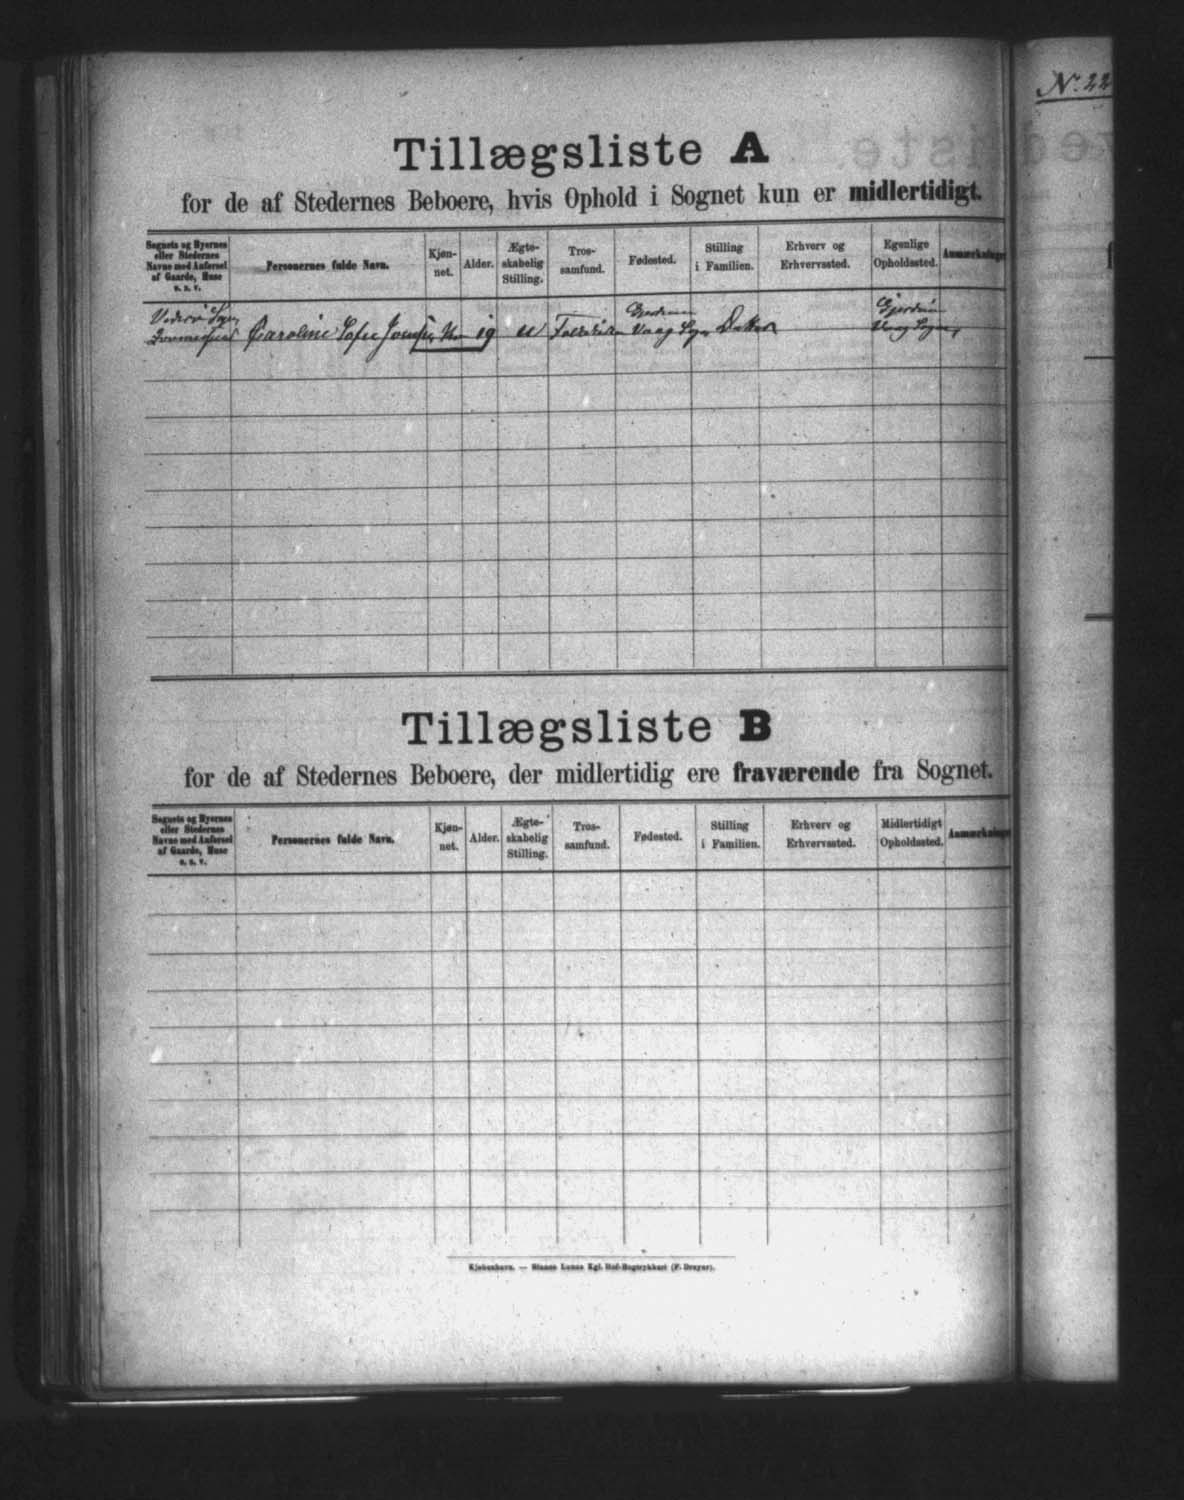 No. 22
Tillægsliste A
for de af Stedernes Beboere, hvis Ophold i Sognet kun er midlertidigt.
Sognets og Byernes eller Stedernes Navne med Anførsel af Gaarde, Huse o. s. v. Personernes fulde Navn. Kjøn-net. Alder. Ægte-skabelig Stilling. Tros-samfund. Fødested. Stilling i Familien. Erhverv og Erhvervssted. Egenlige Opholdssted. Anmærkninger
Caroline Sofie K 19 U Folkekirken Vaag Sogn Datter Vaag Sogn
Tillægsliste B
for de af Stedernes Beboere, der midlertidig ere fraværende fra Sognet.
Sognets og Byernes eller Stedernes Navne med Anførsel af Gaarde, Huse o. s. v. Personernes fulde Navn. Kjøn-net. Alder. Ægte-skabelig Stilling. Tros-samfund. Fødested. Stilling i Familien. Erhverv og Erhvervssted. Midlertidigt Opholdssted. Anmærkninger
Kjøbenhavn. — Bianco Lunos Kgl. Hof-Bogtrykkeri (F. Dreyer).